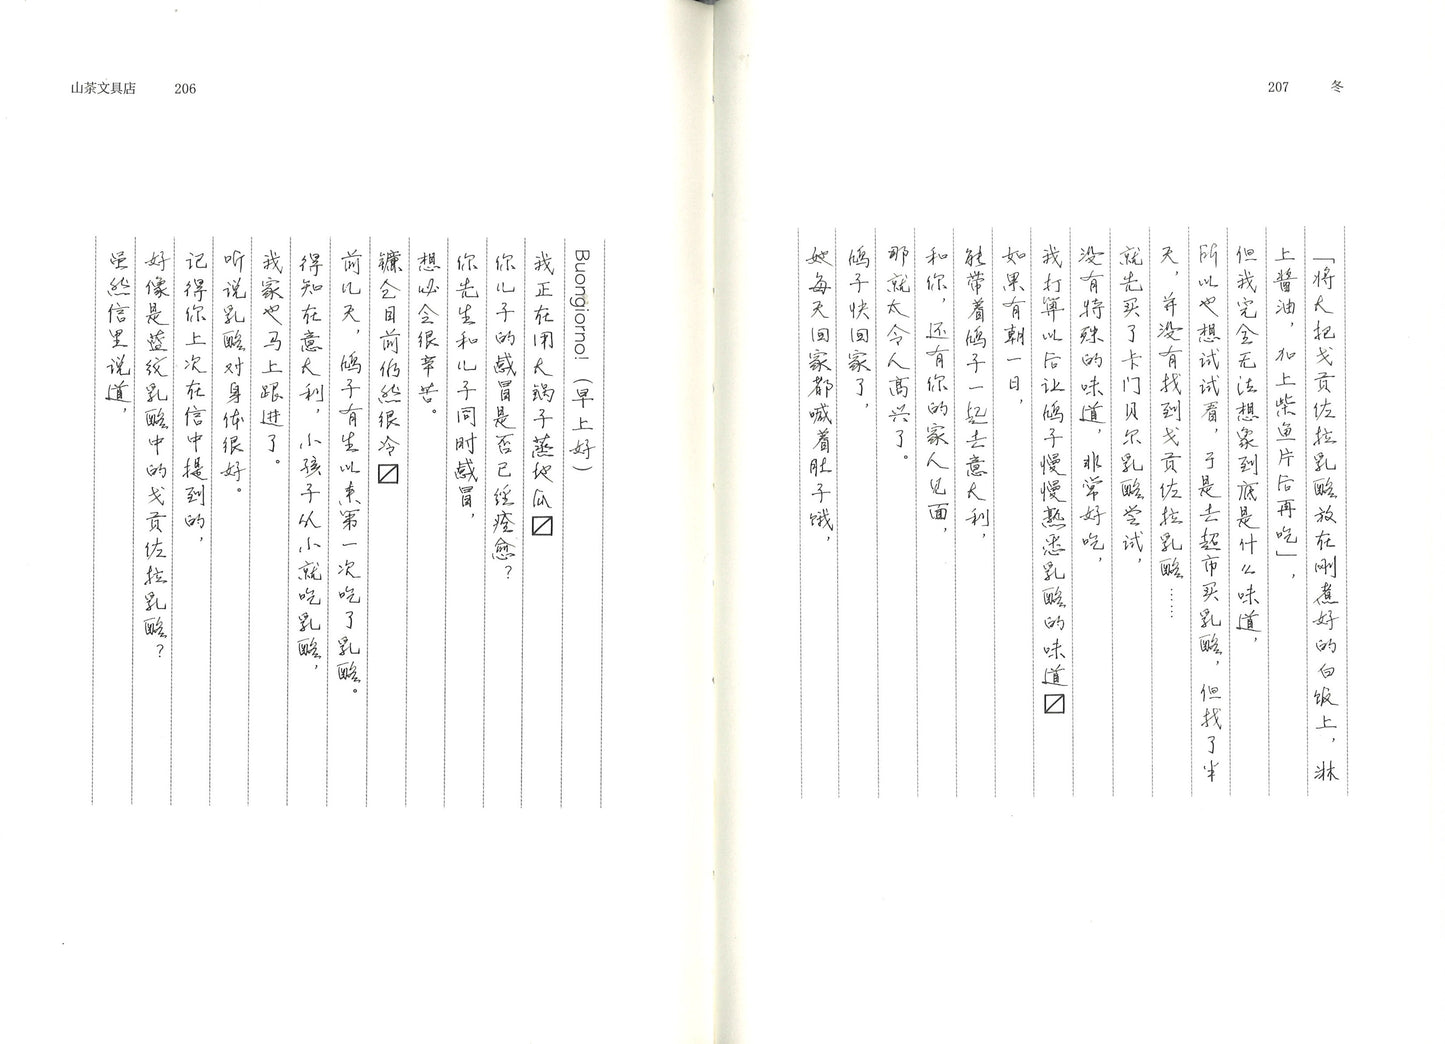 山茶文具店 206
Buongiorno!（早上好）
我正在用大锅子蒸地瓜〼
你儿子的感冒是否已经痊愈？
你先生和儿子同时感冒，
想必会很辛苦。
镰仓目前仍然很冷〼
前几天，鸠子有生以来第一次吃了乳酪。
得知在意大利，小孩子从小就吃乳酪，
我家也马上跟进了。
听说乳酪对身体很好。
记得你上次在信中提到的，
好像是蓝纹乳酪中的戈贡佐拉乳酪？
虽然信里说道，
207 冬
「将大把戈贡佐拉乳酪放在刚煮好的白饭上，淋
上酱油，加上柴鱼片后再吃」，
但我完全无法想象到底是什么味道，
所以也想试试看，于是去超市买乳酪，但找了半
天，并没有找到戈贡佐拉乳酪……
就先买了卡门贝尔乳酪尝试，
没有特殊的味道，非常好吃，
我打算以后让鸠子慢慢熟悉乳酪的味道〼
如果有朝一日，
能带着鸠子一起去意大利，
和你，还有你的家人见面，
那就太令人高兴了。
鸠子快回家了，
她每天回家都喊着肚子饿，